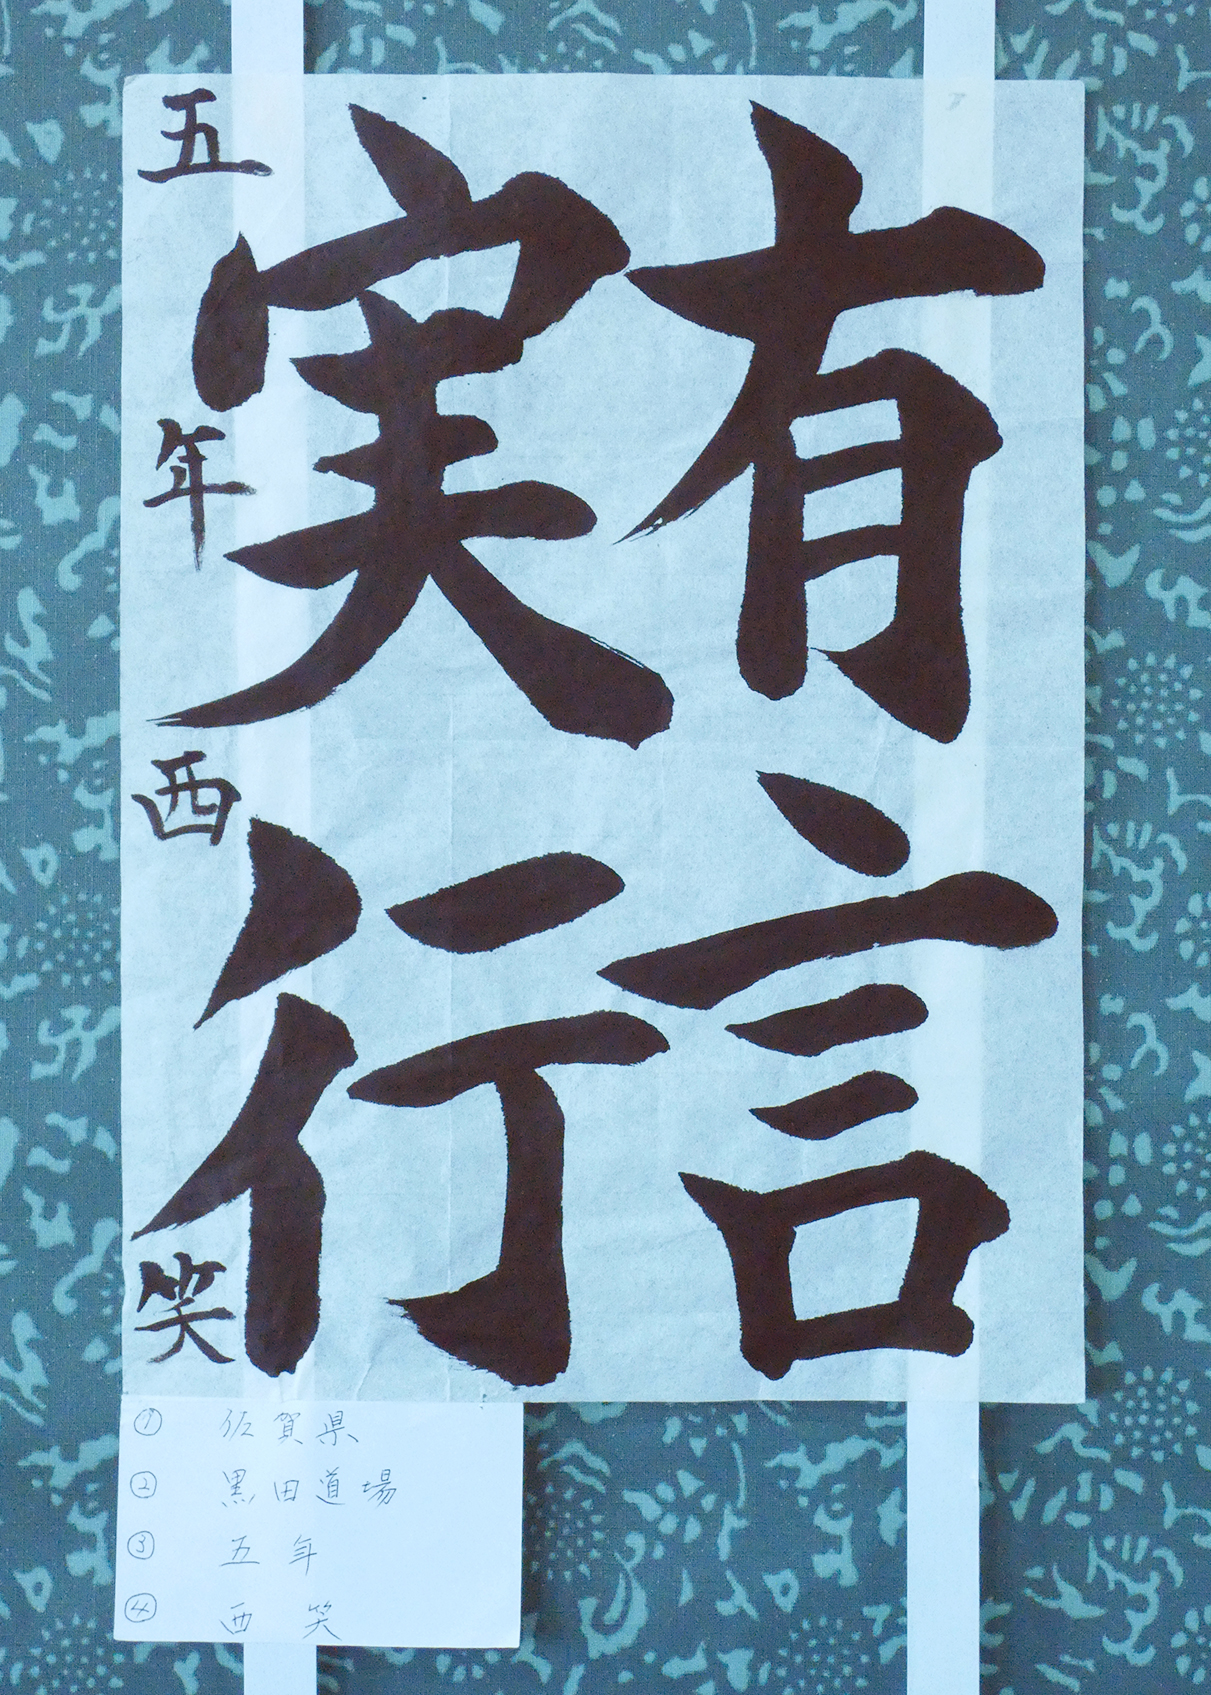 有言
実行
五年 西 笑
① 佐賀県
② 黒田道場
③ 五年
④ 西 笑